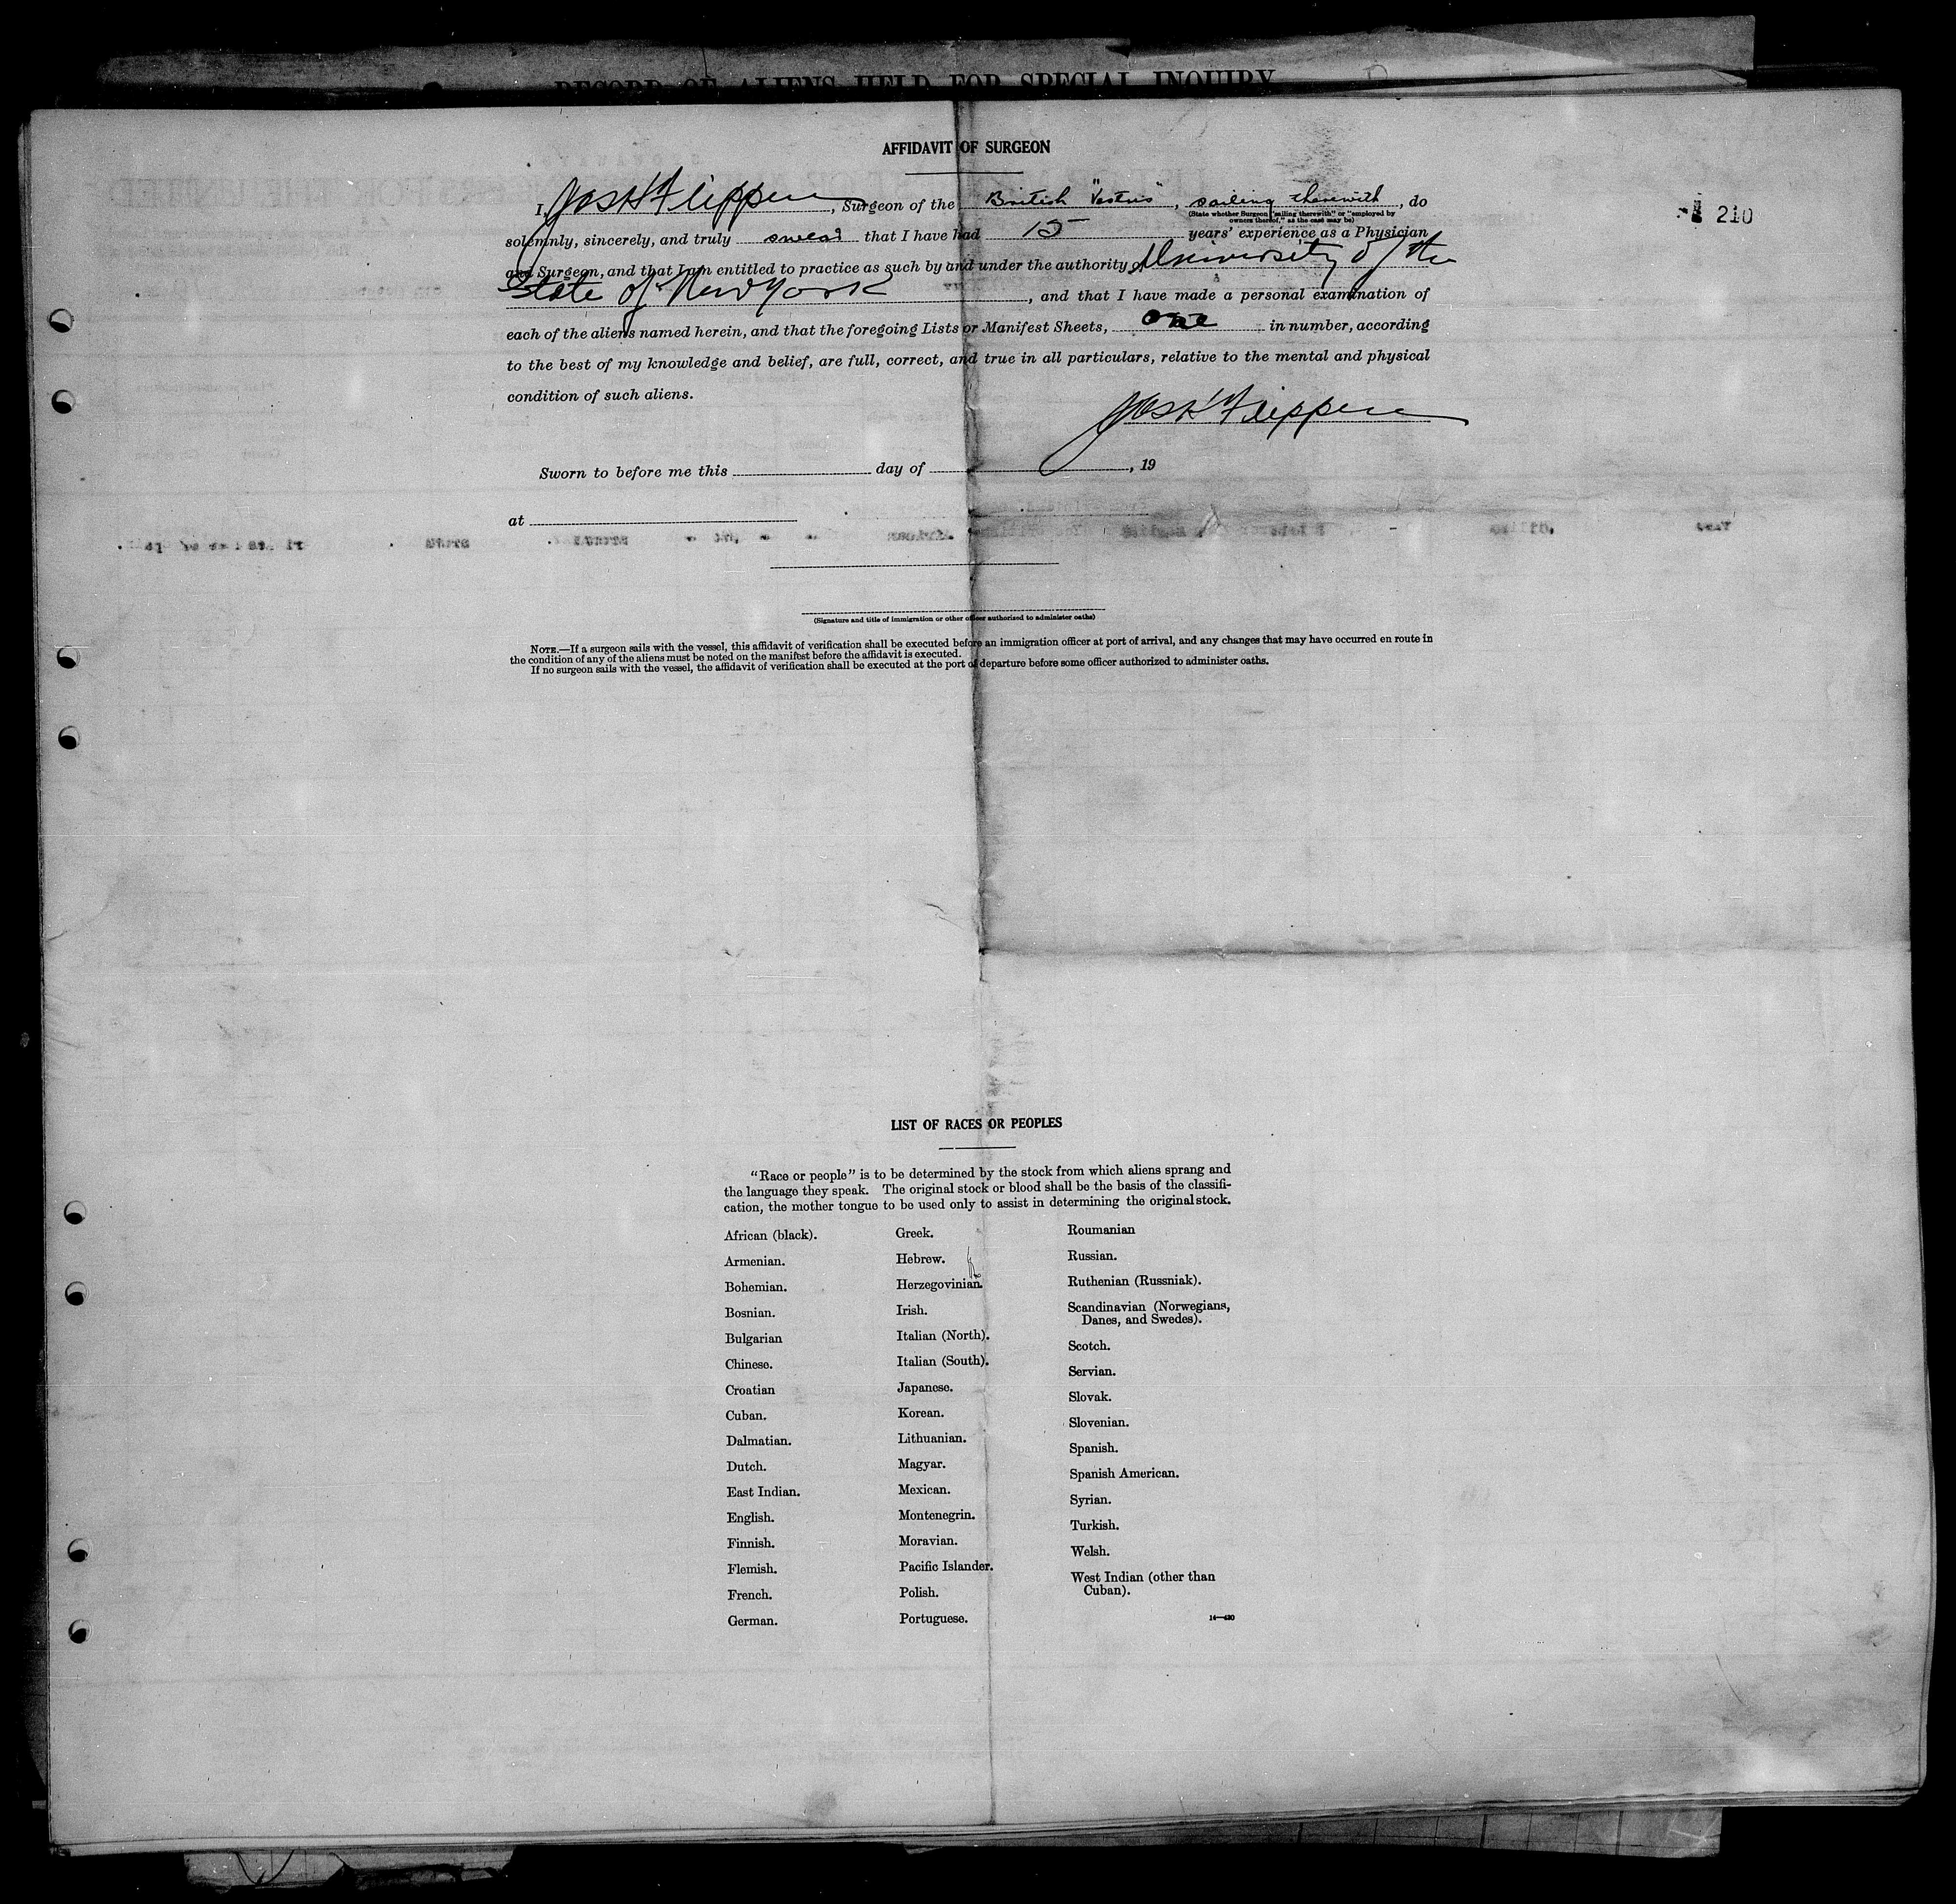 RECORD OF ALIENS HELD FOR SPECIAL INQUIRY
AFFIDAVIT OF SURGEON
I, Jos H Flippen, Surgeon of the British "Vestris", sailing therewith, do
(State whether Surgeon "sailing therewith" or "employed by
owners thereof," as the case may be)
210
solemnly, sincerely, and truly swear that I have had 15 years' experience as a Physician
and Surgeon, and that I am entitled to practice as such by and under the authority of University of the
State of New York, and that I have made a personal examination of
each of the aliens named herein, and that the foregoing Lists or Manifest Sheets, one in number, according
to the best of my knowledge and belief, are full, correct, and true in all particulars, relative to the mental and physical
condition of such aliens.
Jos H Flippen
Sworn to before me this day of , 19
at
(Signature and title of immigration or other officer authorized to administer oaths)
NOTE.—If a surgeon sails with the vessel, this affidavit of verification shall be executed before an immigration officer at port of arrival, and any changes that may have occurred en route in
the condition of any of the aliens must be noted on the manifest before the affidavit is executed.
If no surgeon sails with the vessel, the affidavit of verification shall be executed at the port of departure before some officer authorized to administer oaths.
LIST OF RACES OR PEOPLES
"Race or people" is to be determined by the stock from which aliens sprang and
the language they speak. The original stock or blood shall be the basis of the classifi-
cation, the mother tongue to be used only to assist in determining the original stock.
African (black).
Armenian.
Bohemian.
Bosnian.
Bulgarian
Chinese.
Croatian
Cuban.
Dalmatian.
Dutch.
East Indian.
English.
Finnish.
Flemish.
French.
German.
Greek.
Hebrew.
Herzegovinian.
Irish.
Italian (North).
Italian (South).
Japanese.
Korean.
Lithuanian.
Magyar.
Mexican.
Montenegrin.
Moravian.
Pacific Islander.
Polish.
Portuguese.
Roumanian
Russian.
Ruthenian (Russniak).
Scandinavian (Norwegians,
Danes, and Swedes).
Scotch.
Servian.
Slovak.
Slovenian.
Spanish.
Spanish American.
Syrian.
Turkish.
Welsh.
West Indian (other than
Cuban).
14—430